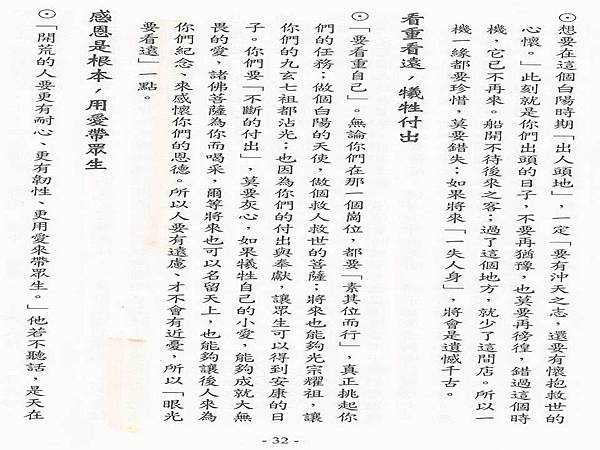 ⊙想要在這個白陽時期「出人頭地」，一定「要有沖天之志，還要有懷抱救世的
心懷。」此刻就是你們出頭的日子，不要再猶豫，也莫要再徬徨，錯過這個時
機，它已不再來。船開不待後來之客；過了這個地方，就少了這間店。所以一
機一緣都要珍惜，莫要錯失；如果將來「一失人身」，將會是遺憾千古。
看重看遠，犧牲付出
⊙「要看重自己」。無論你們在那一個崗位，都要「素其位而行」，真正挑起你
們的任務；做個白陽的天使，做個救人救世的菩薩；將來也能夠光宗耀祖，讓
你們的九玄七祖都沾光；也因為你們的付出與奉獻，讓眾生可以得到安康的日
子。你們要「不斷的付出」，莫要灰心，如果犧牲自己的小愛，能夠成就大無
畏的愛，諸佛菩薩為你而喝采，爾等將來也可以名留天上，也能夠讓後人來為
你們紀念、來感懷你們的恩德。所以人要有遠慮、才不會有近憂，所以「眼光
要看遠」一點。
感恩是根本，用愛帶眾生
⊙「開荒的人要更有耐心、更有韌性、更用愛來帶眾生。」他若不聽話，是天在
- 32 -